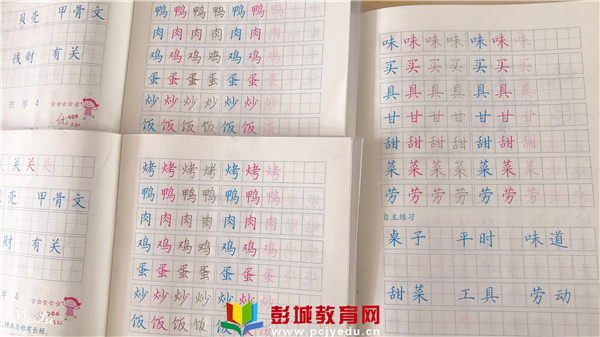 贝壳 甲骨文
钱财 有关
识字4
优
鸭鸭鸭鸭鸭鸭鸭
肉肉肉肉肉肉肉
鸡鸡鸡鸡鸡鸡鸡
蛋蛋蛋蛋蛋蛋蛋
炒炒炒炒炒炒炒
饭饭饭饭饭饭饭
关关关关
贝壳 甲骨文
钱财 有关
字4
烤烤烤烤烤烤烤
鸭鸭鸭鸭鸭鸭鸭
肉肉肉肉肉肉肉
鸡鸡鸡鸡鸡鸡鸡
蛋蛋蛋蛋蛋蛋蛋
炒炒炒炒炒炒炒
饭饭饭饭饭饭饭
味味味味味味味
买买买买买买买
具具具具具具具
甘甘甘甘甘甘甘
甜甜甜甜甜甜甜
菜菜菜菜菜菜菜
劳劳劳劳劳劳劳
自主练习
桌子 平时 味道
甜菜 工具 劳动
彭城教育网
www.pcjyedu.cn